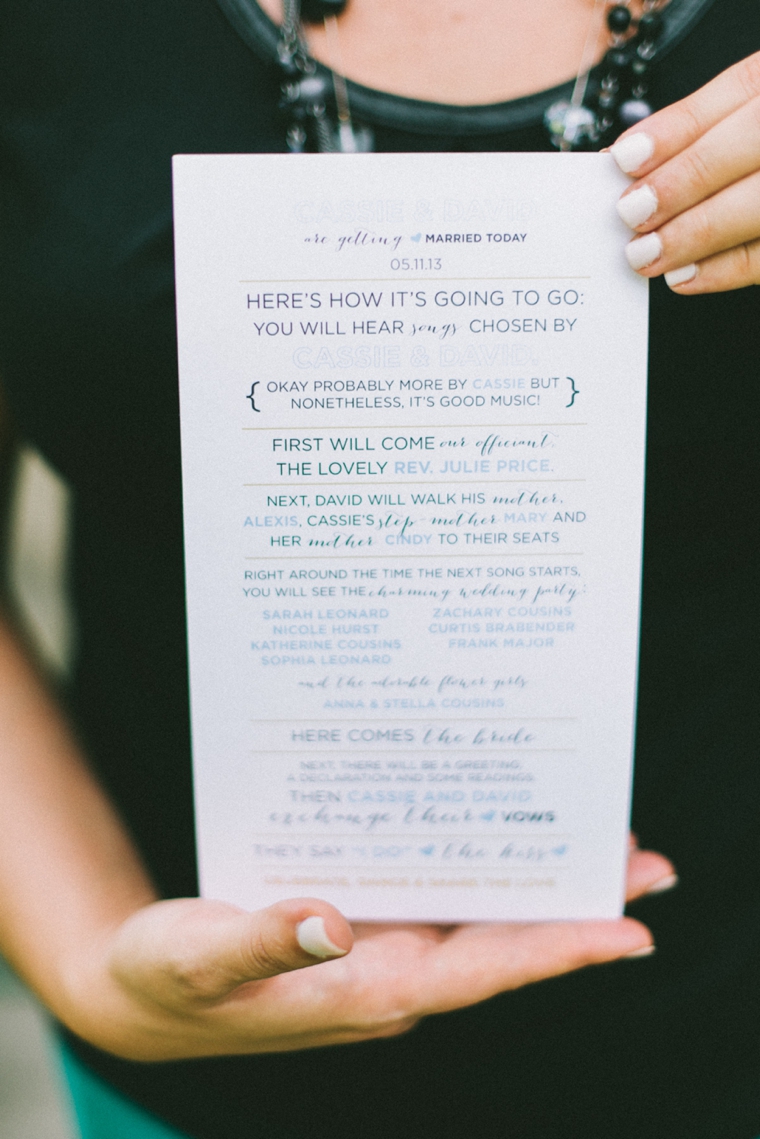 CASSIE & DAVID
are getting MARRIED TODAY
05.11.13
HERE'S HOW IT'S GOING TO GO:
YOU WILL HEAR songs CHOSEN BY
CASSIE & DAVID.
{ OKAY PROBABLY MORE BY CASSIE BUT
NONETHELESS, IT'S GOOD MUSIC! }
FIRST WILL COME our officiant,
THE LOVELY REV. JULIE PRICE.
NEXT, DAVID WILL WALK HIS mother,
ALEXIS, CASSIE'S step-mother MARY AND
HER mother CINDY TO THEIR SEATS
RIGHT AROUND THE TIME THE NEXT SONG STARTS,
YOU WILL SEE THE charming wedding party:
SARAH LEONARD
NICOLE HURST
KATHERINE COUSINS
SOPHIA LEONARD
ZACHARY COUSINS
CURTIS BRABENDER
FRANK MAJOR
and the adorable flower girls
ANNA & STELLA COUSINS
HERE COMES the bride
NEXT, THERE WILL BE A GREETING,
A DECLARATION AND SOME READINGS.
THEN CASSIE AND DAVID
exchange their VOWS
THEY SAY "I DO" the kiss
CELEBRATE, DANCE & SHARE THE LOVE